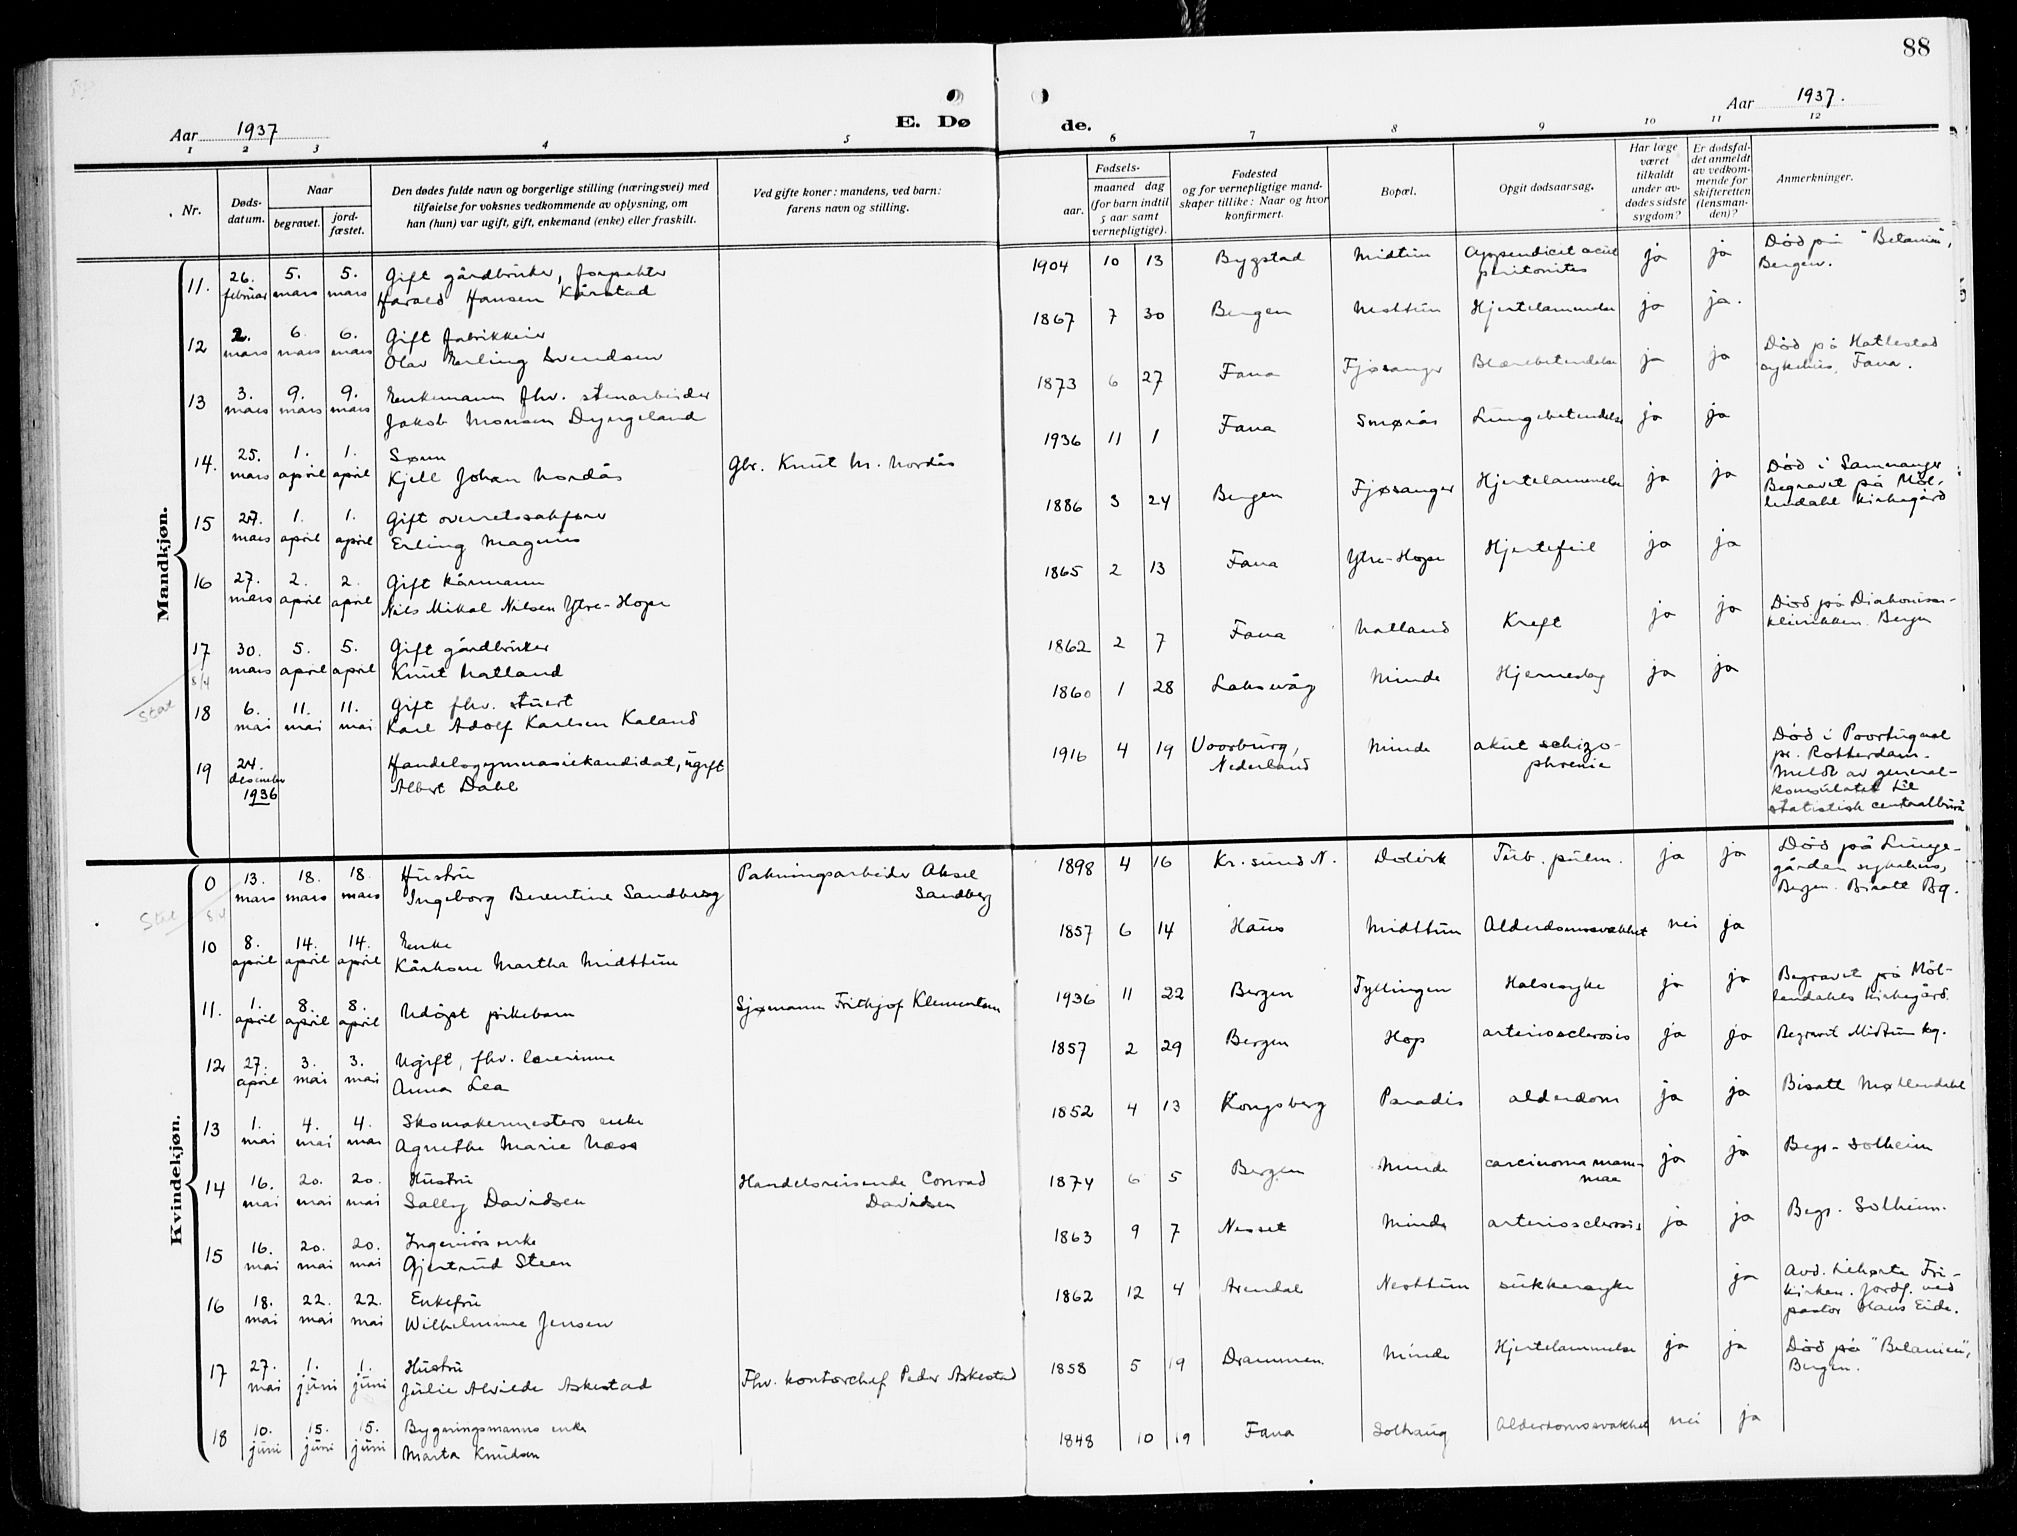 88
Aar 1937
E. Dø
de.
Aar 1937.
1 2 3 4 5 6 7 8 9 10 11 12
Nr.
Døds-
datum.
Naar
begravet.
jord-
fæstet.
Den dødes fulde navn og borgerlige stilling (næringsvei) med
tilføielse for voksnes vedkommende av oplysning, om
han (hun) var ugift, gift, enkemand (enke) eller fraskilt.
Ved gifte koner: mandens, ved barn:
farens navn og stilling.
Fødsels-
aar.
maaned dag
(for barn indtil
5 aar samt
vernepligtige).
Fødested
og for vernepligtige mand-
skaper tillike: Naar og hvor
konfirmert.
Bopæl.
Opgit dødsaarsag.
Har læge
været
tilkaldt
under av-
dødes sidste
sygdom?
Er dødsfal-
det anmeldt
av vedkom-
mende for
skifteretten
(lensman-
den)?
Anmerkninger.
Mandkjøn.
11. 26. februar 5. mars 5. mars Gift gårdbruker, forpakter
Harald Hansen Kårstad
1904 10 13 Bygstad Midtun Appendicit acut
peritonites ja ja Død på "Betanien",
Bergen.
12 2. mars 6. mars 6. mars Gift fabrikkeier
Olav Erling Svendsen
1867 7 30 Bergen Nesttun Hjertelammelse ja ja.
13 3. mars 9. mars 9. mars Enkemann fhv. stenarbeider
Jakob Monsen Dyngeland
1873 6 27 Fana Fjøsanger Blærebetendelse ja ja Død på Hatlestad
sykehus, Fana.
14. 25. mars 1. april 1. april Sønn
Kjell Johan Nordås Gbr. Knut M. Nordås
1936 11 1 Fana Smørås Lungebetendelse ja ja
15 27. mars 1. april 1. april Gift overretssakfører
Erling Magnus
1886 3 24 Bergen Fjøsanger Hjertelammelse ja ja Død i Samnanger
Begravet på Møl-
lendahl kirkegård
16 27. mars 2. april 2. april Gift kårmann
Nils Mikal Nilsen Ytre-Hope
1865 2 13 Fana Ytre-Hope Hjertefeil ja ja
17 30. mars 5. april 5. april Gift gårdbruker
Knut Natland
1862 2 7 Fana Natland Kreft ja ja Død på Diakonisse-
klinikken. Bergen
5/4
Stat
18 6. mai 11. mai 11. mai Gift fhv. stuert
Karl Adolf Karlsen Kaland
1860 1 28 Laksevåg Minde Hjerneslag ja ja
19 24. desember 1936 Handelsgymnasiekandidat, ugift
Albert Dahl
1916 4 19 Voorburg,
Nederland Minde akut schizo-
phrenie Død i Poortugaal
pr. Rotterdam.
Meldt av general-
konsulatet til
statistisk centralbürå
Kvindekjøn.
13. mars 18. mars 18. mars Hustru
Ingeborg Berentine Sandberg Pakningsarbeider Aksel
Sandberg
1898 4 16 Kr. sund N. Dolvik Tub. pulm. ja ja Død på Lunge-
gården sykehus,
Bergen. Bisatt Bg.
Stat
10 8. april 14. april 14. april Enke
Kårkone Martha Midttun
1857 6 14 Haus Midttun Alderdomssvakhet nei ja
11. 1. april 8. april 8. april Udøpt pikebarn Sjømann Frithjof Klementsen
1936 11 22 Bergen Tyllingen Halsesyke ja ja Begravet på Møl-
lendahls kirkegård.
12 27. april 3. mai 3. mai Ugift, fhv. lærerinne
Anna Lea
1857 2 29 Bergen Hop arteriosclerosis ja ja Begravet Midtun kg.
13 1. mai 4. mai 4. mai Skomakermesters enke
Agnethe Marie Næss
1852 4 13 Kongsberg Paradis alderdom ja ja Bisatt Møhlendahl
14 16. mai 20. mai 20. mai Hustru
Sally Davidsen Handelsreisende Conrad
Davidsen
1874 6 5 Bergen Minde carcinoma mam-
mae ja ja Begr. Solheim
15 16. mai 20. mai 20. mai Ingeniørs enke
Gjertrud Steen
1863 9 7 Nesset Minde arteriosclerosis ja ja Begr. Solheim.
16 18. mai 22. mai 22. mai Enkefru
Wilhelmine Jensen
1862 12 4 Arendal Nesttun sukkersyke ja Avd. tilhørte Fri-
kirken. Jordf. ved
pastor Hans Eide.
17 27. mai 1. juni 1. juni Hustru
Julie Alvilde Askestad Fhv. kontorchef Peder Askestad
1858 5 19 Drammen. Minde Hjertelammelse ja ja Død på "Betanien",
Bergen.
18 10. juni 15. juni 15. juni Bygningsmanns enke
Marta Knudsen
1848 10 19 Fana Solhaug Alderdomssvakhet nei ja